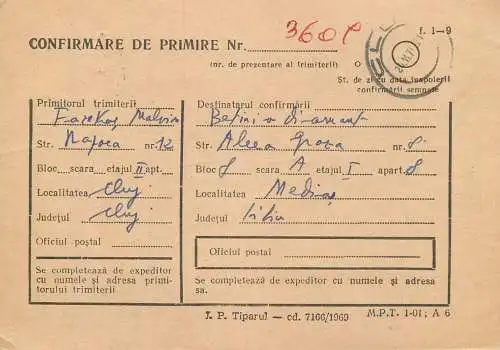 f. 1—9
CONFIRMARE DE PRIMIRE Nr. 360
(nr. de prezentare al trimiterii) O
Șt. de zi cu data înapoierii
confirmării semnate
Primitorul trimiterii
Farkas
Str. Napoca nr. 12
Bloc scara etajul II apt.
Localitatea Cluj
Județul Cluj
Oficiul postal
Se completează de expeditor
cu numele și adresa primi-
torului trimiterii
Destinatarul confirmării
Str. Aleea nr. 8
Bloc 8 scara A etajul I apart. 8
Localitatea Mediaș
Județul Sibiu
Oficiul postal
Se completează de expeditor cu numele și adresa
sa.
I. P. Tiparul — cd. 7166/1969 M.P.T. 1-01; A 6